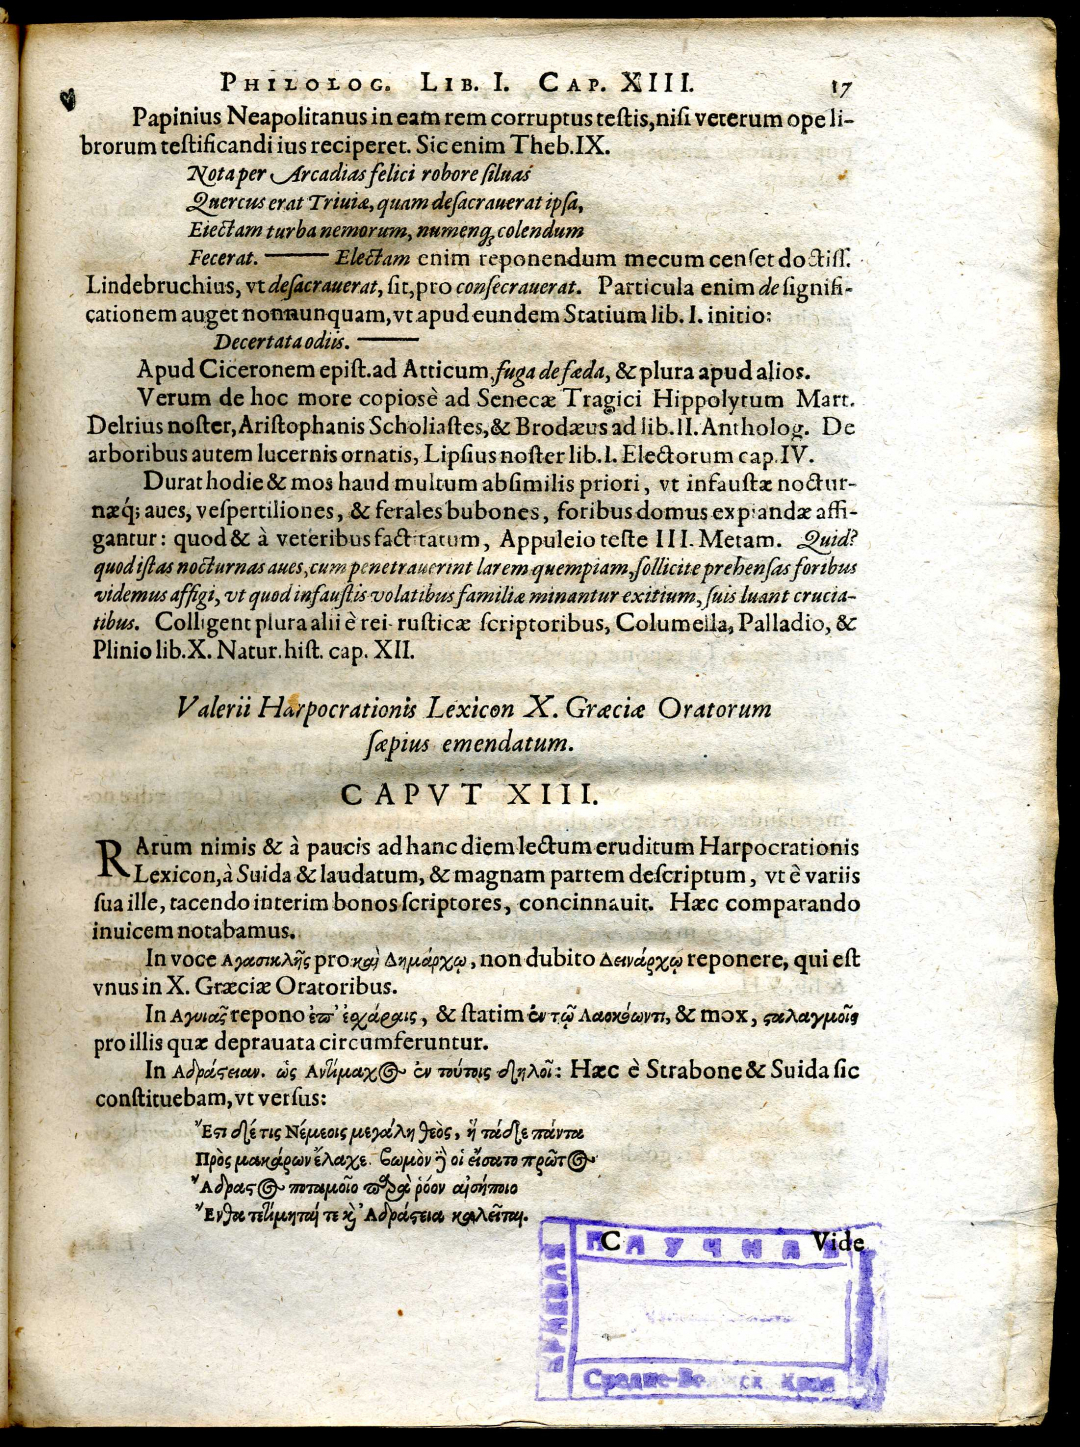 PHILOLOG. LIB. I. CAP. XIII. 17
Papinius Neapolitanus in eam rem corruptus teſtis, niſi veterum ope li-
brorum teſtificandi ius reciperet. Sic enim Theb. IX.
Nota per Arcadias felici robore ſiluas
Quercus erat Triuiæ, quam deſacrauerat ipſa,
Eiectam turba nemorum, numenq; colendum
Fecerat. —— Electam enim reponendum mecum cenſet doctiſſ.
Lindebruchius, vt deſacrauerat, ſit, pro conſecrauerat. Particula enim de ſignifi-
cationem auget nonnunquam, vt apud eundem Statium lib. I. initio:
Decertata odiis. ——
Apud Ciceronem epiſt. ad Atticum, fuga de fæda, & plura apud alios.
Verum de hoc more copiosè ad Senecæ Tragici Hippolytum Mart.
Delrius noſter, Ariſtophanis Scholiaſtes, & Brodæus ad lib. II. Antholog. De
arboribus autem lucernis ornatis, Lipſius noſter lib. I. Electorum cap. IV.
Durat hodie & mos haud multum abſimilis priori, vt infauſtæ noctur-
næq́; aues, veſpertiliones, & ferales bubones, foribus domus expiandæ affi-
gantur: quod & à veteribus factitatum, Appuleio teſte III. Metam. Quid?
quod iſtas nocturnas aues, cum penetrauerint larem quempiam, ſollicite prehenſas foribus
videmus affigi, vt quod infauſtis volatibus familiæ minantur exitium, ſuis luant crucia-
tibus. Colligent plura alii è rei ruſticæ ſcriptoribus, Columella, Palladio, &
Plinio lib. X. Natur. hiſt. cap. XII.
Valerii Harpocrationis Lexicon X. Græciæ Oratorum
ſæpius emendatum.
CAPVT XIII.
RArum nimis & à paucis ad hanc diem lectum eruditum Harpocrationis
Lexicon, à Suida & laudatum, & magnam partem deſcriptum, vt è variis
ſua ille, tacendo interim bonos ſcriptores, concinnauit. Hæc comparando
inuicem notabamus.
In voce Αγασικλῆς pro καὶ Δημάρχῳ, non dubito Δεινάρχῳ reponere, qui eſt
vnus in X. Græciæ Oratoribus.
In Αγυιᾶς repono ἐπ' ἐσχάραις, & ſtatim ἐν τῷ Λαοκόωντι, & mox, ςαλαγμοῖς
pro illis quæ deprauata circumferuntur.
In Αδράςειαν. ὡς Αντίμαχος ἐν τούτοις δηλοῖ: Hæc è Strabone & Suida ſic
conſtituebam, vt verſus:
Ἔςι δέ τις Νέμεσις μεγάλη θεὸς, ἣ τάδε πάντα
Πρὸς μακάρων ἔλαχε. βωμὸν δὲ οἱ εἵσατο πρῶτος
Ἄδραςος ποταμοῖο παρὰ ῥόον αἰσήποιο
Ἔνθα τετίμηταί τε καὶ Ἀδράςεια καλεῖται.
C Vide
НАУЧНАЯ
Средне-Волжск Края